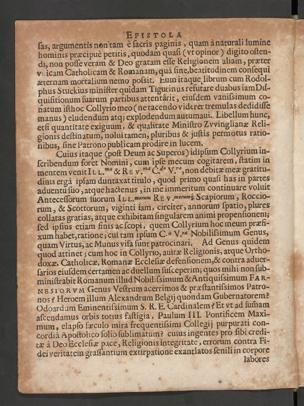 EPISTOLA
sas, argumentis non tam è sacris paginis, quam à naturali lumine
hominis præcipuè petitis, quodam quasi (vt opinor) digito osten-
di, non posse veram & Deo gratam esse Religionem aliam, præter
vnicam Catholicam & Romanam, quâ sine, beatitudinem consequi
æternam mortalium nemo possit. Enim itaque librum cum Rodol-
phus Stuckius minister quidam Tigurinus refutare duabus iam Dis-
quisitionum suarum partibus attentârit; eiusdem vanissimum co-
natum isthoc Collyrio meo (ne tacendo viderer tremulas dedidisse
manus) eludendum atq; explodendum autumaui. Libellum hunc,
etsi quantitate exiguum, & qualitate Ministro Zvvingliana Reli-
gionis destinatum, nolui tamen, pluribus & iustis permotus ratio-
nibus, sine Patrono publicam prodire in lucem.
Cuius itaque (post Deum ac Superos) idipsum Collyrium in-
scribendum foret Nomini, cum ipse mecum cogitarem, statim in
mentem venit
dini ergà ipsam duntaxat titulo, quod primò quasi has in partes
aduentui suo, atque hactenus, in me immeritum continuare voluit
Antecessorum suorum
rum, & Scottorum, viginti iam, circiter, annorum spatio, plures
collatas gratias, atque exhibitam singularem animi propensionem;
sed ipsius etiam finis ac scopi, quem Collyrium hoc meum præfi-
xum habet, ratione; cui tam ipsum Nobilissimum Genus,
quam Virtus, ac Munus visa sunt patrocinari. Ad Genus quidem
quod attinet; cum hoc in Collyrio, auitæ Religionis, atque Ortho-
doxæ, Catholicæ, Romanæ Ecclesiæ defensionem, & contra aduer-
sarios eiusdem certamen ac duellum susceperim; quos mihi non sub-
ministrabit Romanum illud Nobilissimum & Antiquissimum FAR-
NESIORVM Genus Vestrum acerrimos & præstantissimos Patro-
nos? Heroem illum Alexandrum Belgij quondam Gubernatorem?
Odoardum Eminentissimum S. R. E. Cardinalem? Et vt ad summam
ascendamus orbis totius fastigia, Paulum III. Pontificem Maxi-
mum, elapso sæculo mira frequentissimi Collegij purpurati con-
cordiâ Apostolico solio sublimatum? cuius ingentes pro sibi credi-
tæ à Deo Ecclesiæ pace, Religionis integritate, errorum contra Fi-
dei veritatem grassantium extirpatione exantlatos senili in corpore
labores